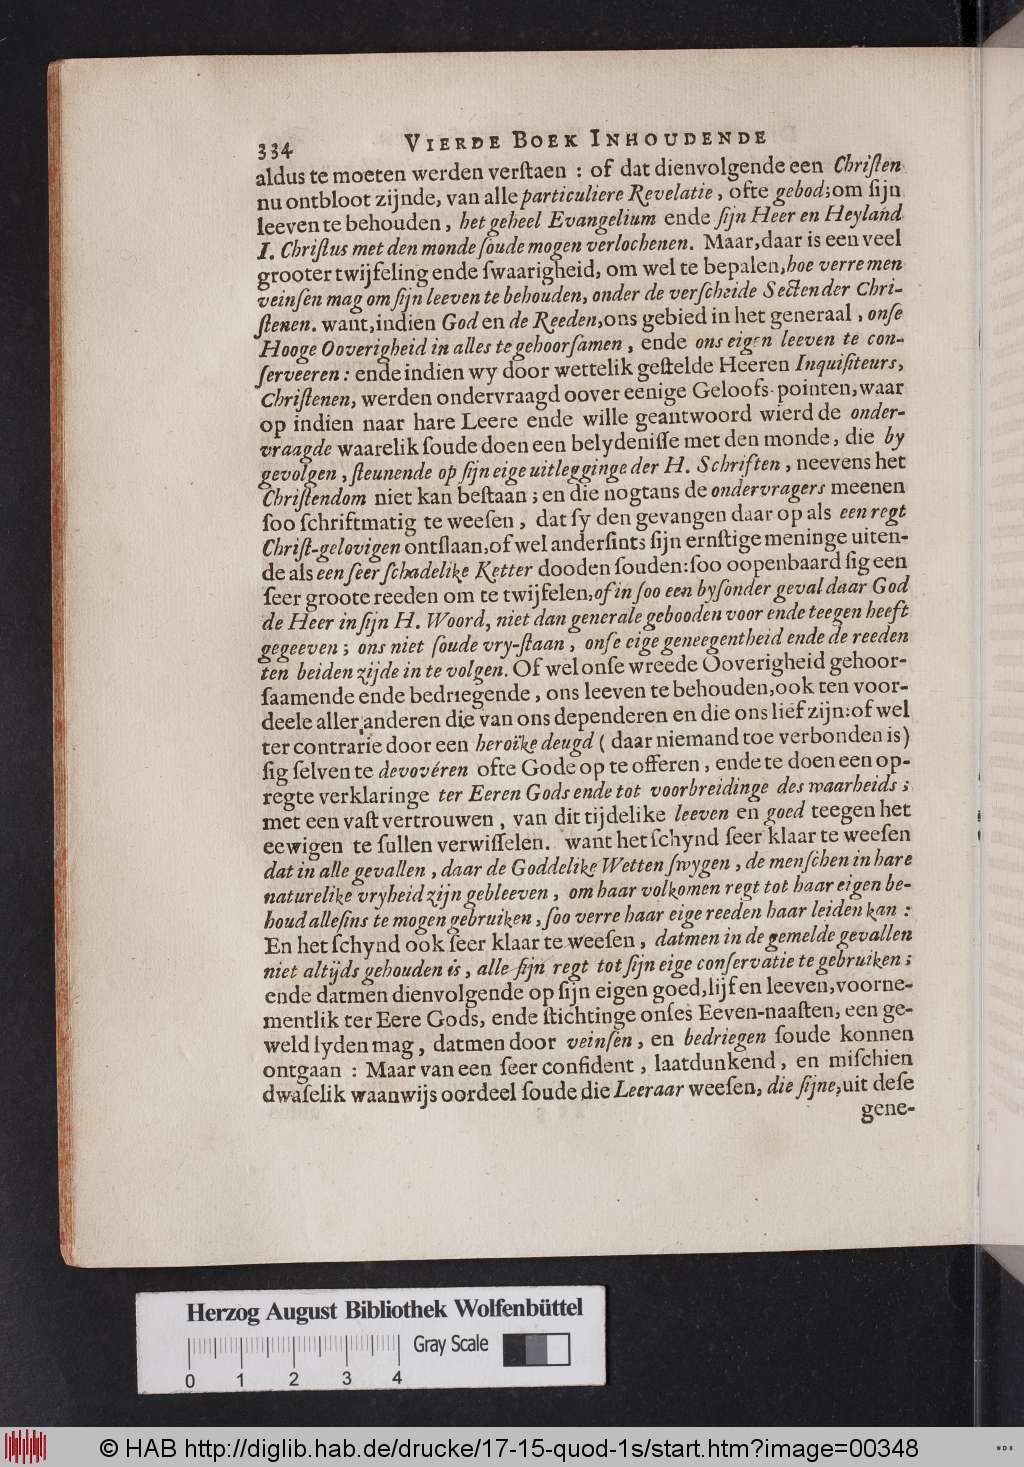 334 VIERDE BOEK INHOUDENDE
aldus te moeten werden verſtaen : of dat dienvolgende een Chriſten
nu ontbloot zijnde, van alle particuliere Revelatie, ofte gebod; om ſijn
leeven te behouden, het geheel Evangelium ende ſijn Heer en Heyland
I. Chriſtus met den monde ſoude mogen verlochenen. Maar, daar is een veel
grooter twijfeling ende ſwaarigheid, om wel te bepalen, hoe verre men
veinſen mag om ſijn leeven te behouden, onder de verſcheide Secten der Chri-
ſtenen. want, indien God en de Reeden, ons gebied in het generaal, onſe
Hooge Ooverigheid in alles te gehoorſamen, ende ons eigen leeven te con-
ſerveeren : ende indien wy door wettelik geſtelde Heeren Inquiſiteurs,
Chriſtenen, werden ondervraagd oover eenige Geloofs-pointen, waar
op indien naar hare Leere ende wille geantwoord wierd de onder-
vraagde waarelik ſoude doen een belydeniſſe met den monde, die by
gevolgen, ſteunende op ſijn eige uitlegginge der H. Schriften, neevens het
Chriſtendom niet kan beſtaan ; en die nogtans de ondervragers meenen
ſoo ſchriftmatig te weeſen, dat ſy den gevangen daar op als een regt
Chriſt-gelovigen ontſlaan, of wel anderſints ſijn ernſtige meninge uiten-
de als een ſeer ſchadelike Ketter dooden ſouden: ſoo oopenbaard ſig een
ſeer groote reeden om te twijfelen, of in ſoo een byſonder geval daar God
de Heer in ſijn H. Woord, niet dan generale gebooden voor ende teegen heeft
gegeeven ; ons niet ſoude vry-ſtaan, onſe eige geneegentheid ende de reeden
ten beiden zijde in te volgen. Of wel onſe wreede Ooverigheid gehoor-
ſaamende ende bedriegende, ons leeven te behouden, ook ten voor-
deele aller anderen die van ons dependeren en die ons lief zijn: of wel
ter contrarie door een heroïke deugd ( daar niemand toe verbonden is )
ſig ſelven te devovéren ofte Gode op te offeren, ende te doen een op-
regte verklaringe ter Eeren Gods ende tot voorbreidinge des waarheids ;
met een vaſt vertrouwen, van dit tijdelike leeven en goed teegen het
eewigen te ſullen verwiſſelen. want het ſchynd ſeer klaar te weeſen
dat in alle gevallen, daar de Goddelike Wetten ſwygen, de menſchen in hare
naturelike vryheid zijn gebleeven, om haar volkomen regt tot haar eigen be-
houd alleſins te mogen gebruiken, ſoo verre haar eige reeden haar leiden kan :
En het ſchynd ook ſeer klaar te weeſen, datmen in de gemelde gevallen
niet altijds gehouden is, alle ſijn regt tot ſijn eige conſervatie te gebruiken ;
ende datmen dienvolgende op ſijn eigen goed, lijf en leeven, voorne-
mentlik ter Eere Gods, ende ſtichtinge onſes Eeven-naaſten, een ge-
weld lyden mag, datmen door veinſen, en bedriegen ſoude konnen
ontgaan : Maar van een ſeer confident, laatdunkend, en miſchien
dwaſelik waanwijs oordeel ſoude die Leeraar weeſen, die ſijne, uit deſe
gene-
Herzog August Bibliothek Wolfenbüttel
Gray Scale
0 1 2 3 4
© HAB http://diglib.hab.de/drucke/17-15-quod-1s/start.htm?image=00348